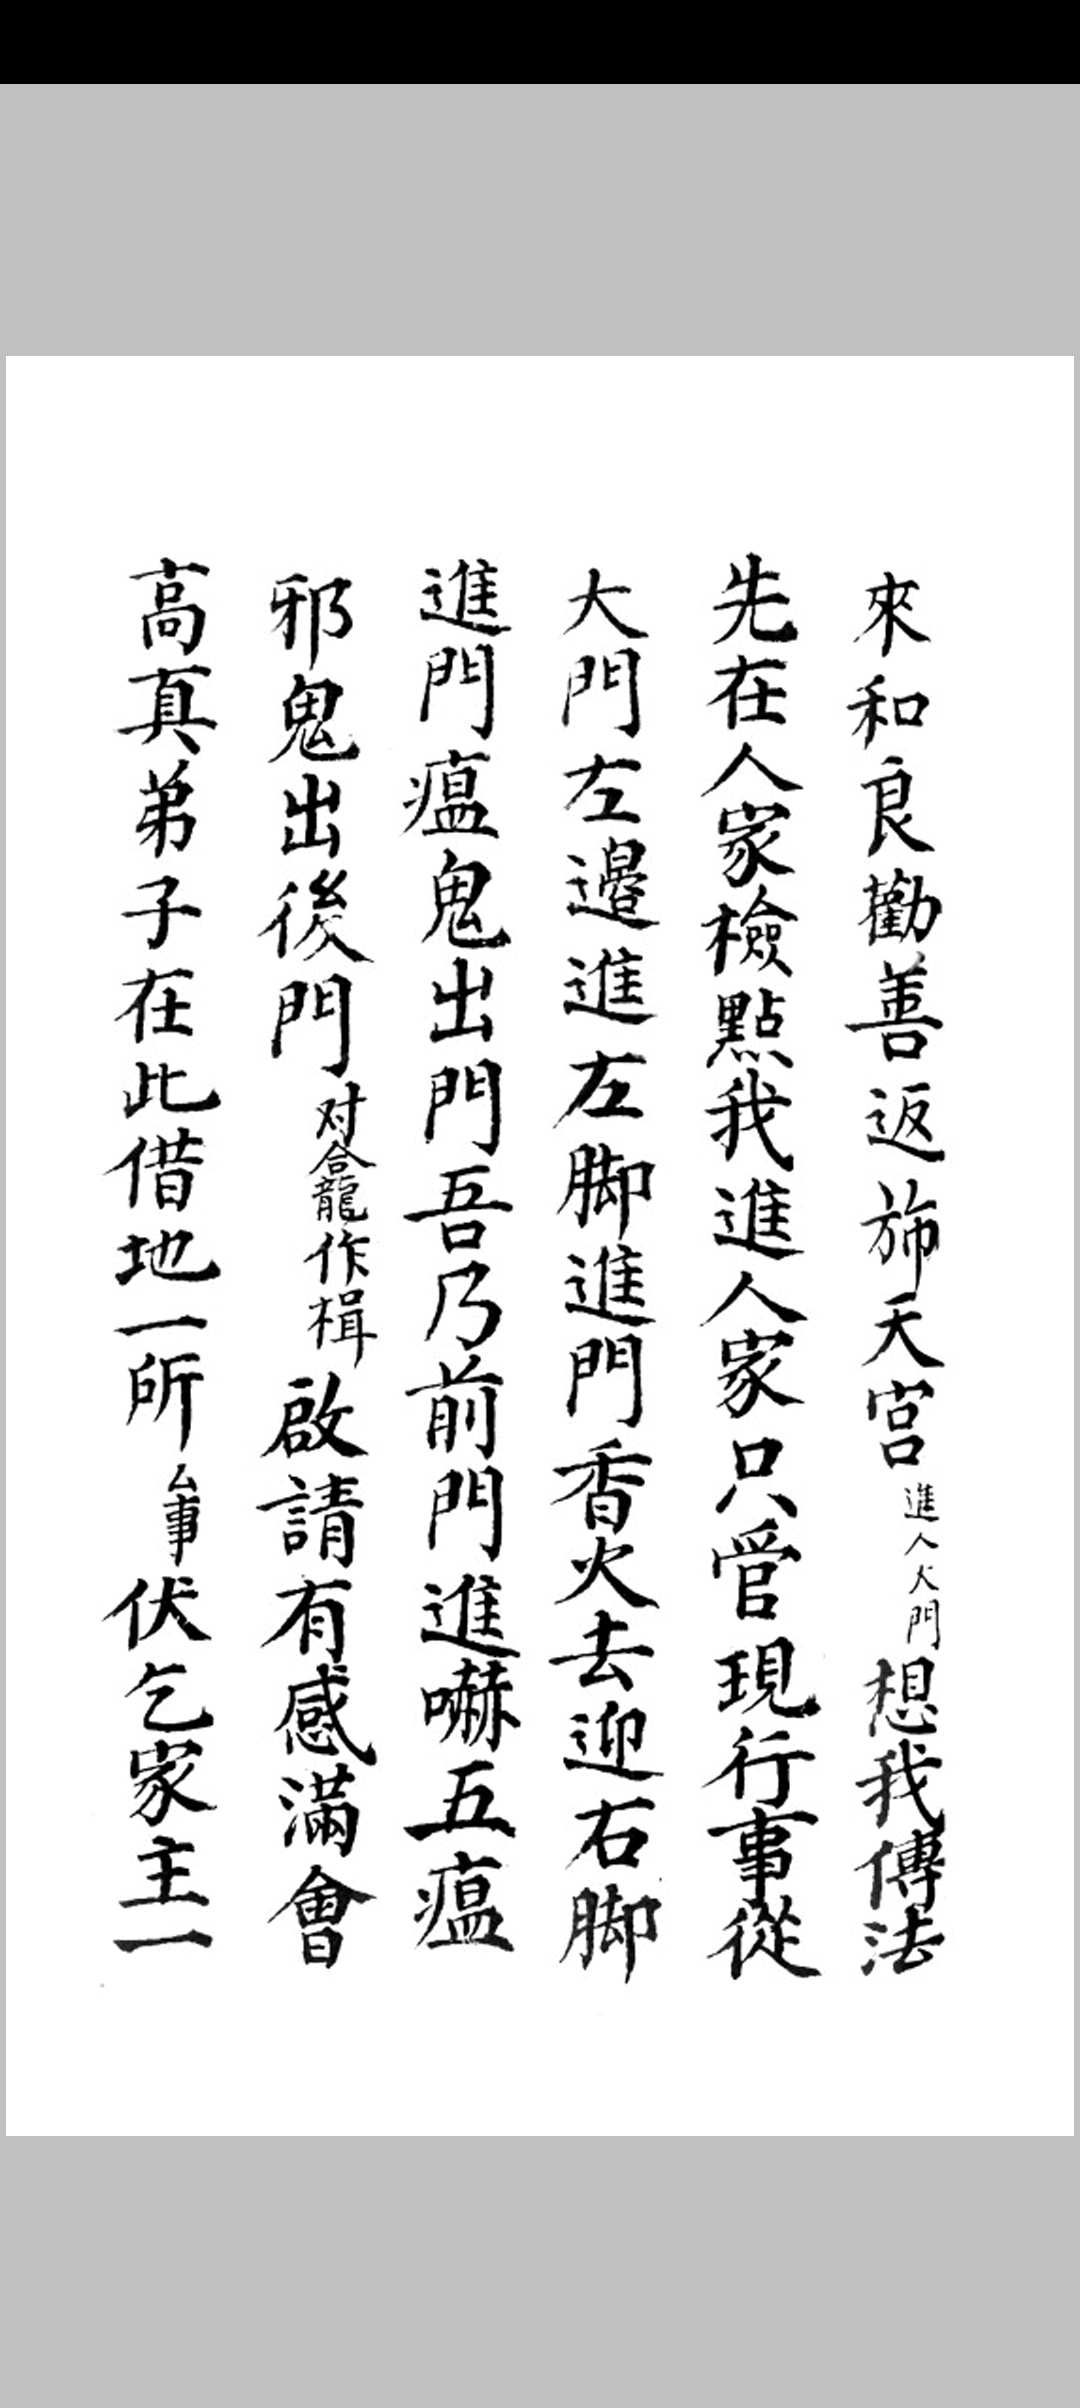 來和良勸善返斾天宮進人大門想我傳法
先在人家檢點我進人家只管現行事從
大門左邊進左脚進門香火去迎右脚
進門瘟鬼出門吾乃前門進嚇五瘟
邪鬼出後門对龕作楫啟請有感滿會
高真弟子在此借地一所厶事伏乞家主一